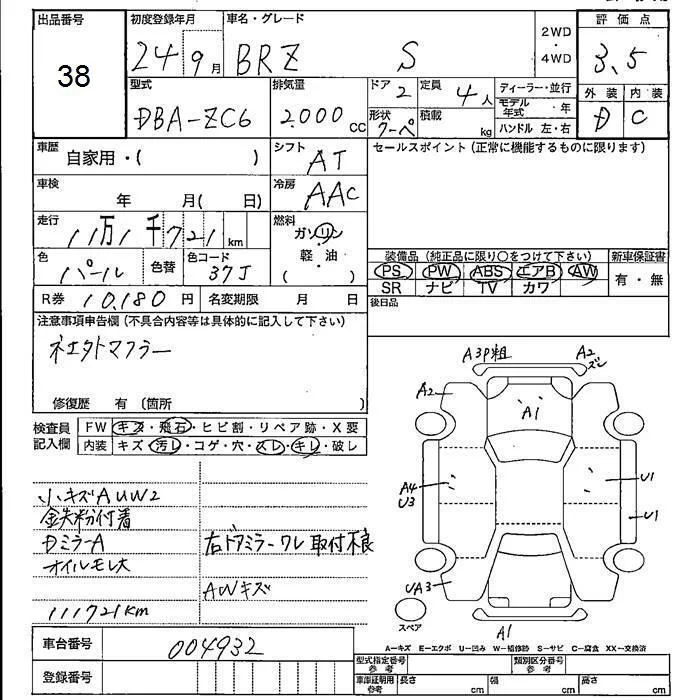 出品番号 38
初度登録年月 24 9月
車名・グレード BRZ S
2WD・4WD
評価点 3.5
型式 DBA-ZC6
排気量 2000 CC
ドア 2
定員 4人
形状 クーペ
積載 kg
ディーラー・並行
モデル年式 年
ハンドル 左・右
外装 D
内装 C
車歴 自家用・( )
シフト AT
セールスポイント (正常に機能するものに限ります)
車検 年 月( 日)
冷房 AAC
走行 11万1千721 km
燃料 ガソリン 軽・油 ( )
色 パール
色替
色コード 37J
装備品 (純正品に限り○をつけて下さい)
PS PW ABS エアB AW
SR ナビ TV カワ
新車保証書 有・無
R券 10,180円
名変期限 月 日
後日品
注意事項申告欄 (不具合内容等は具体的に記入して下さい)
修復歴 有 (箇所 )
検査員記入欄
FW キズ・飛石・ヒビ割・リペア跡・X要
内装 キズ・汚レ・コゲ・穴・スレ・キレ・破レ
小キズAUW2
鉄粉付着
DミラーA
オイルモレ大
右ドアミラーワレ 取付不良
AWキズ
111721km
A3P粗
A2
A2
A1
A4
U3
U1
U1
UA3
A1
スペア
A-キズ E-エクボ U-凹み W-補修跡 S-サビ C-腐食 XX-交換済
車台番号 004932
登録番号
型式指定番号 参考
類別区分番号 参考
車庫証明用 参考 長さ cm 幅 cm 高さ cm